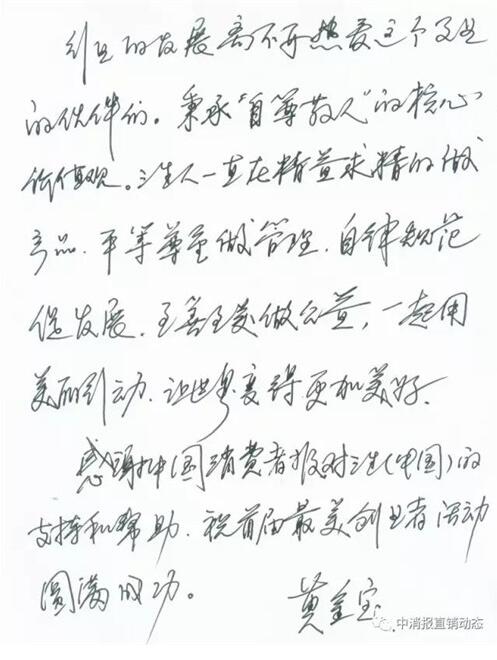 创业的发展离不开热爱这个事业
的伙伴们。秉承“自尊敬人”的核心
价值观。三生人一直在精益求精的做
产品、平等尊重做管理、自律规范
促发展、至善至美做公益,一起用
美丽引动、让世界变得更加美好、
感谢中国消费者报对三生(中国)的
支持和帮助、祝首届最美创业者活动
圆满成功。
黄金宝
中消报直销动态